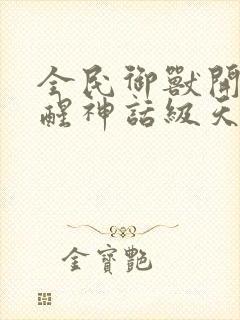 全民御獸開
醒神話級天
金寶艷